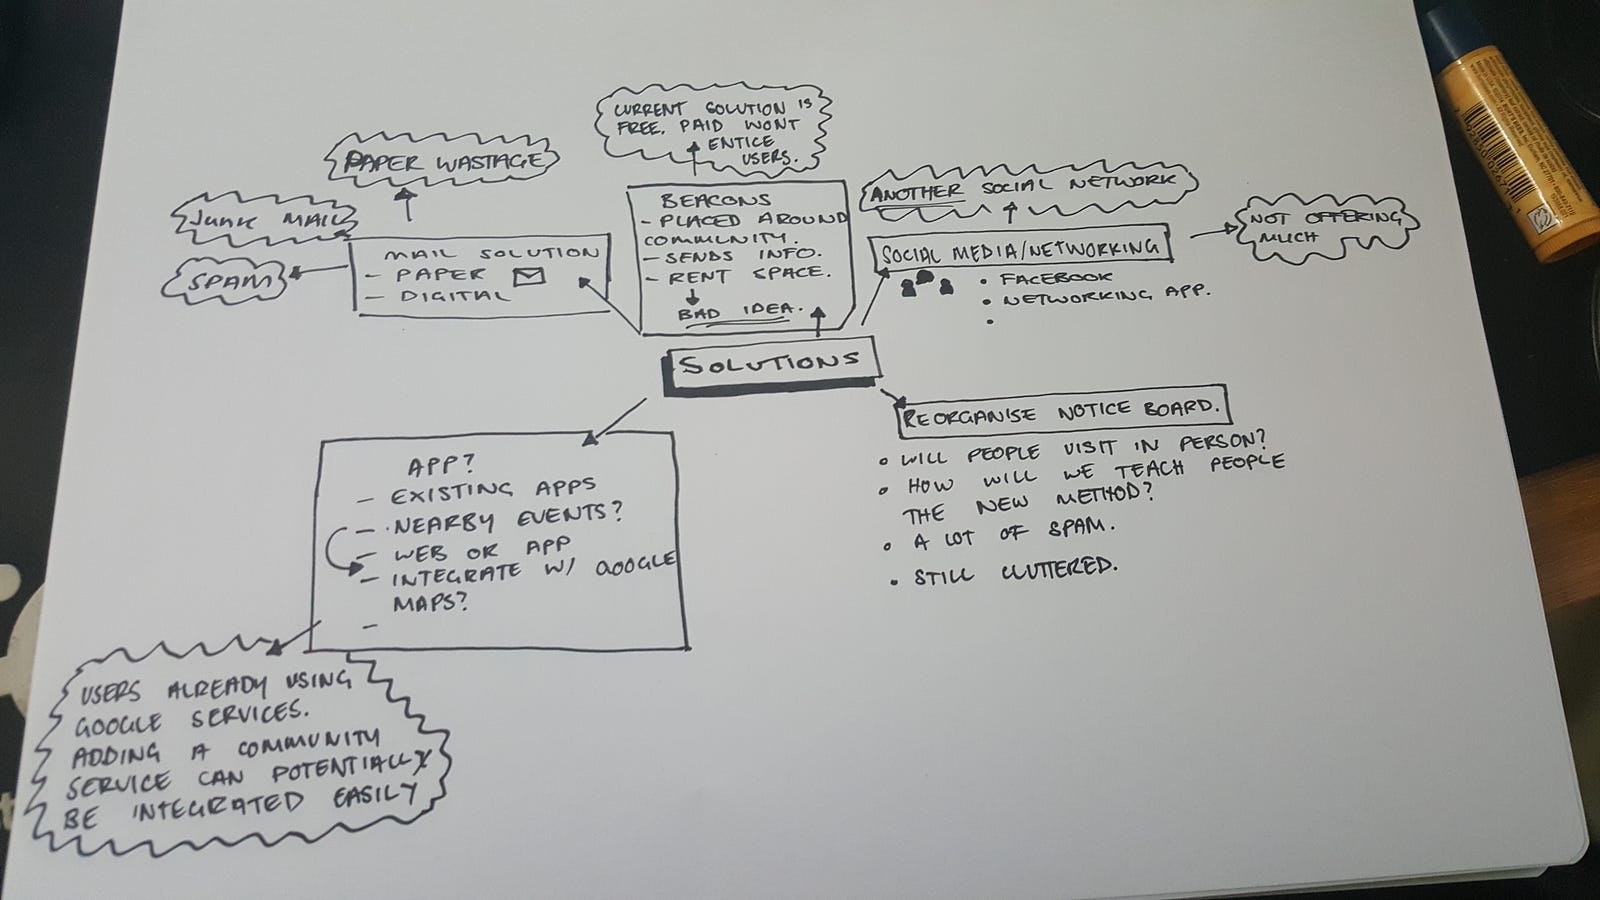 CURRENT SOLUTION IS
FREE. PAID WONT
ENTICE
USERS.
PAPER WASTAGE
JUNK MAIL
SPAM
MAIL SOLUTION
- PAPER
- DIGITAL
BEACONS
- PLACED AROUND
COMMUNITY.
- SENDS INFO.
- RENT SPACE.
BAD IDEA.
ANOTHER SOCIAL NETWORK
NOT OFFERING
MUCH
SOCIAL MEDIA/NETWORKING
• FACEBOOK
• NETWORKING APP.
•
SOLUTIONS
REORGANISE NOTICE BOARD.
• WILL PEOPLE VISIT IN PERSON?
• HOW WILL WE TEACH PEOPLE
THE NEW METHOD?
• A LOT OF SPAM.
• STILL CLUTTERED.
APP?
- EXISTING APPS
- NEARBY EVENTS?
- WEB OR APP
- INTEGRATE W/ GOOGLE
MAPS?
-
USERS ALREADY USING
GOOGLE SERVICES.
ADDING A COMMUNITY
SERVICE CAN POTENTIALLY
BE INTEGRATED EASILY